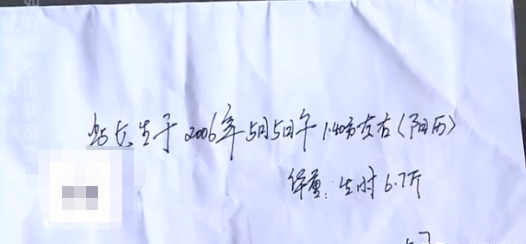 生于2006年5月5日午1.40分左右(阳历)
体重:生时6.7斤